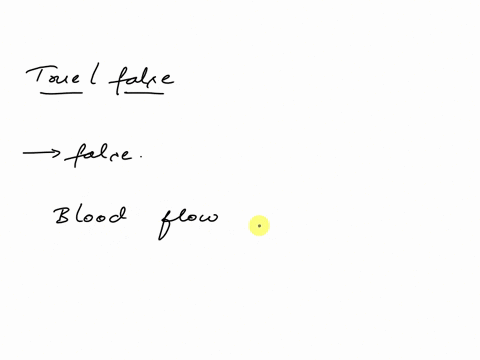 True / false
→ false.
Blood flow